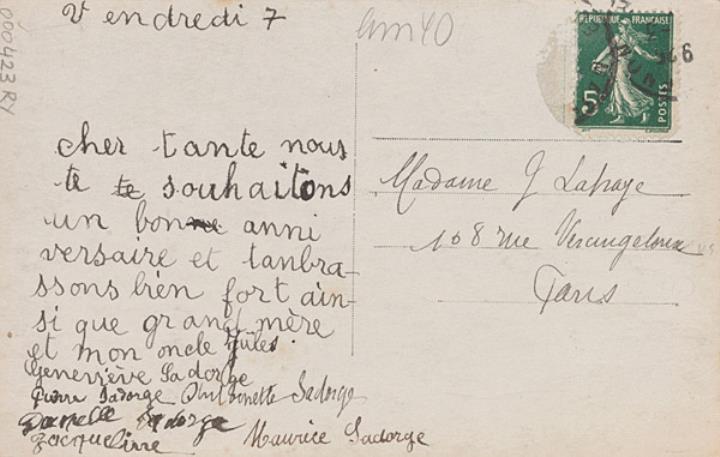 Vendredi 7
am40
000423 RY
RÉPUBLIQUE FRANÇAISE
5c
POSTES
cher tante nous
te te souhaitons
un bonne anni
versaire et tanbra-
ssons bien fort ain-
si que grand mère
et mon oncle Jules.
Geneviève Sadorge
Pierre Sadorge Antoinette Sadorge
Danielle Sadorge
Jacqueline Maurice Sadorge
Madame J Lahaye
108 rue
Paris